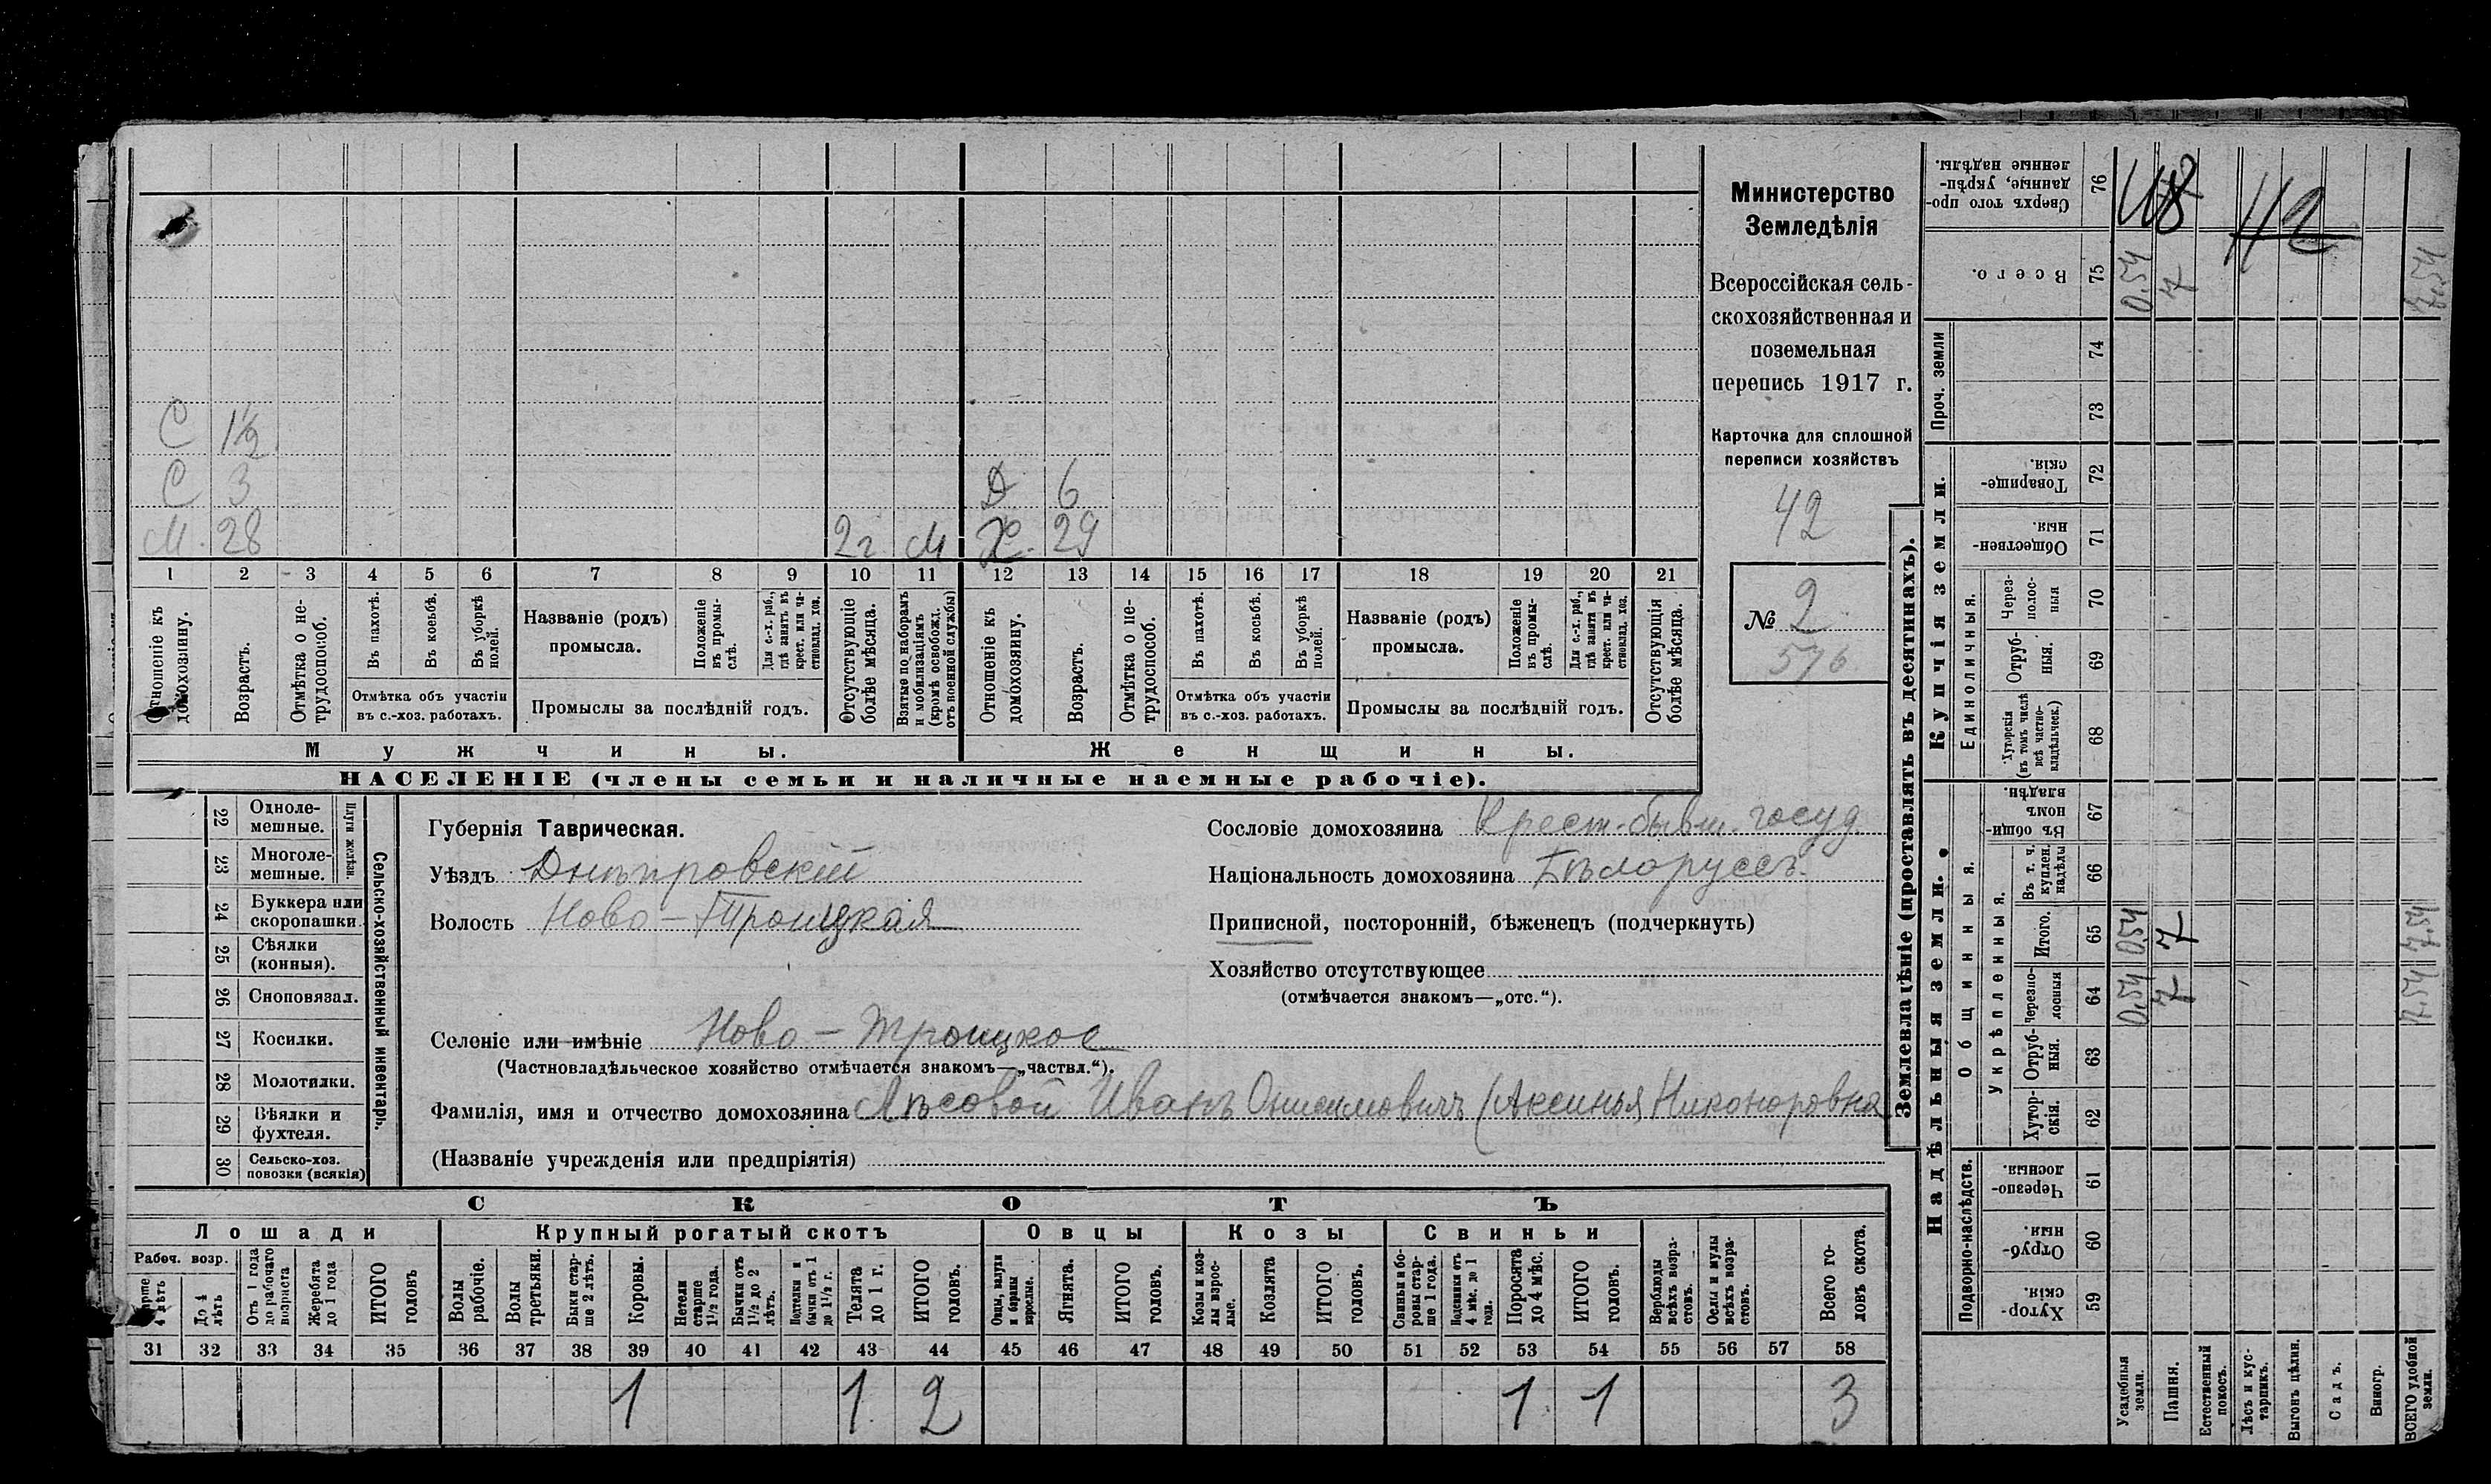 Министерство
Земледѣлія
Всероссійская сель-
скохозяйственная и
поземельная
перепись 1917 г.
Карточка для сплошной
переписи хозяйствъ
42
№ 2
576
С 1½
С 3 Д 6
М. 28 2 г. М Ж. 29
1 2 3 4 5 6 7 8 9 10 11 12 13 14 15 16 17 18 19 20 21
Отношеніе къ домохозяину.
Возрастъ.
Отмѣтка о не-трудоспособ.
Въ пахотѣ.
Въ косьбѣ.
Въ уборкѣ полей.
Отмѣтка объ участіи
въ с.-хоз. работахъ.
Названіе (родъ)
промысла.
Положеніе въ промы-слѣ.
Для с.-х. раб., гдѣ занятъ въ крест. или ча-стновлад. хоз.
Промыслы за послѣдній годъ.
Отсутствующіе болѣе мѣсяца.
Взятые по наборамъ и мобилизаціямъ (кромѣ освобожд. отъ военной службы)
Отношеніе къ домохозяину.
Возрастъ.
Отмѣтка о не-трудоспособ.
Въ пахотѣ.
Въ косьбѣ.
Въ уборкѣ полей.
Отмѣтка объ участіи
въ с.-хоз. работахъ.
Названіе (родъ)
промысла.
Положеніе въ промы-слѣ.
Для с.-х. раб., гдѣ заняти въ крест. или ча-стновлад. хоз.
Промыслы за послѣдній годъ.
Отсутствующія болѣе мѣсяца.
Мужчины. Женщины.
НАСЕЛЕНІЕ (члены семьи и наличные наемные рабочіе).
22 Одноле-мешные.
23 Многоле-мешные.
Плуги желѣзн.
24 Буккера или скоропашки.
25 Сѣялки (конныя).
26 Сноповязал.
27 Косилки.
28 Молотилки.
29 Вѣялки и фухтеля.
30 Сельско-хоз. повозки (всякія)
Сельско-хозяйственный инвентарь.
Губернія Таврическая.
Уѣздъ Днѣпровскій
Волость Ново-Троицкая
Селеніе или имѣніе Ново-Троицкое
(Частновладѣльческое хозяйство отмѣчается знакомъ—„частвл.“).
Фамилія, имя и отчество домохозяина Лѣсовой Иванъ Онисимовичъ (Аксинья Никоноровна
(Названіе учрежденія или предпріятія)
Сословіе домохозяина Крест. бывш. госуд.
Національность домохозяина Бѣлоруссъ.
Приписной, посторонній, бѣженецъ (подчеркнуть)
Хозяйство отсутствующее
(отмѣчается знакомъ—„отс.“).
СКОТЪ
Лошади Крупный рогатый скотъ Овцы Козы Свиньи
Рабоч. возр.
Старше 4 лѣтъ
До 4 лѣтъ
Отъ 1 года до рабочаго возраста
Жеребята до 1 года
ИТОГО головъ
Волы рабочіе.
Волы третьяки.
Быки стар-ше 2 лѣтъ.
Коровы.
Нетели старше 1½ года.
Бычки отъ 1½ до 2 лѣтъ.
Подтелки и бычки отъ 1 до 1½ г.
Телята до 1 г.
ИТОГО головъ.
Овцы, валухи и бараны взрослые.
Ягнята.
ИТОГО головъ.
Козы и коз-лы взрос-лые.
Козлята
ИТОГО головъ.
Свиньи и бо-ровы стар-ше 1 года.
Подсвинки отъ 4 мѣс. до 1 года.
Поросята до 4 мѣс.
ИТОГО головъ.
Верблюды всѣхъ возра-стовъ.
Ослы и мулы всѣхъ возра-стовъ.
Всего го-ловъ скота.
31 32 33 34 35 36 37 38 39 40 41 42 43 44 45 46 47 48 49 50 51 52 53 54 55 56 57 58
1 1 2 1 1 3
Землевладѣніе (проставлять въ десятинахъ).
Надѣльныя земли. Купчія земли. Проч. земли
Подворно-наслѣдств.
Общинныя.
Укрѣпленныя.
Единоличныя.
Хутор-скія. 59
Отруб-ныя. 60
Черезпо-лосныя 61
Хутор-скія. 62
Отруб-ныя. 63
Черезпо-лосныя 64 0,54 7 7.54
Итого. 65 0,54 7 7.54
Въ т. ч. куплен. надѣлы 66
Въ общи-номъ владѣн. 67
Хуторскія (въ томъ числѣ всѣ частно-владѣльческ.) 68
Отруб-ныя. 69
Через-полос-ныя 70
Обществен-ныя. 71
Товарище-скія. 72
73
74
Всего. 75 0,54 7 7.54
Сверхъ того про-данные, укрѣп-ленные надѣлы. 76
Усадебныя земли.
Пашня.
Естественный покосъ.
Лѣсъ и кус-тарникъ.
Выгонъ цѣлин.
Садъ.
Виногр.
ВСЕГО удобной земли.